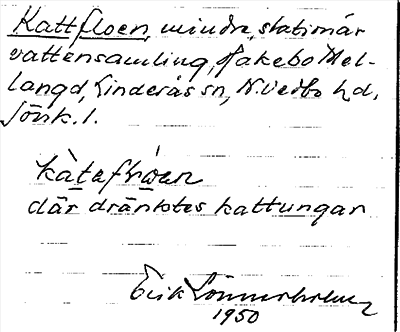 Kattfloen, mindre, stationär
vattensamling, Jakebo Mel-
langd, Linderås sn, N. Vedbo hd,
Jönk. l.
kàtaflóen
där dränktes kattungar
Erik Lönnerholm
1950